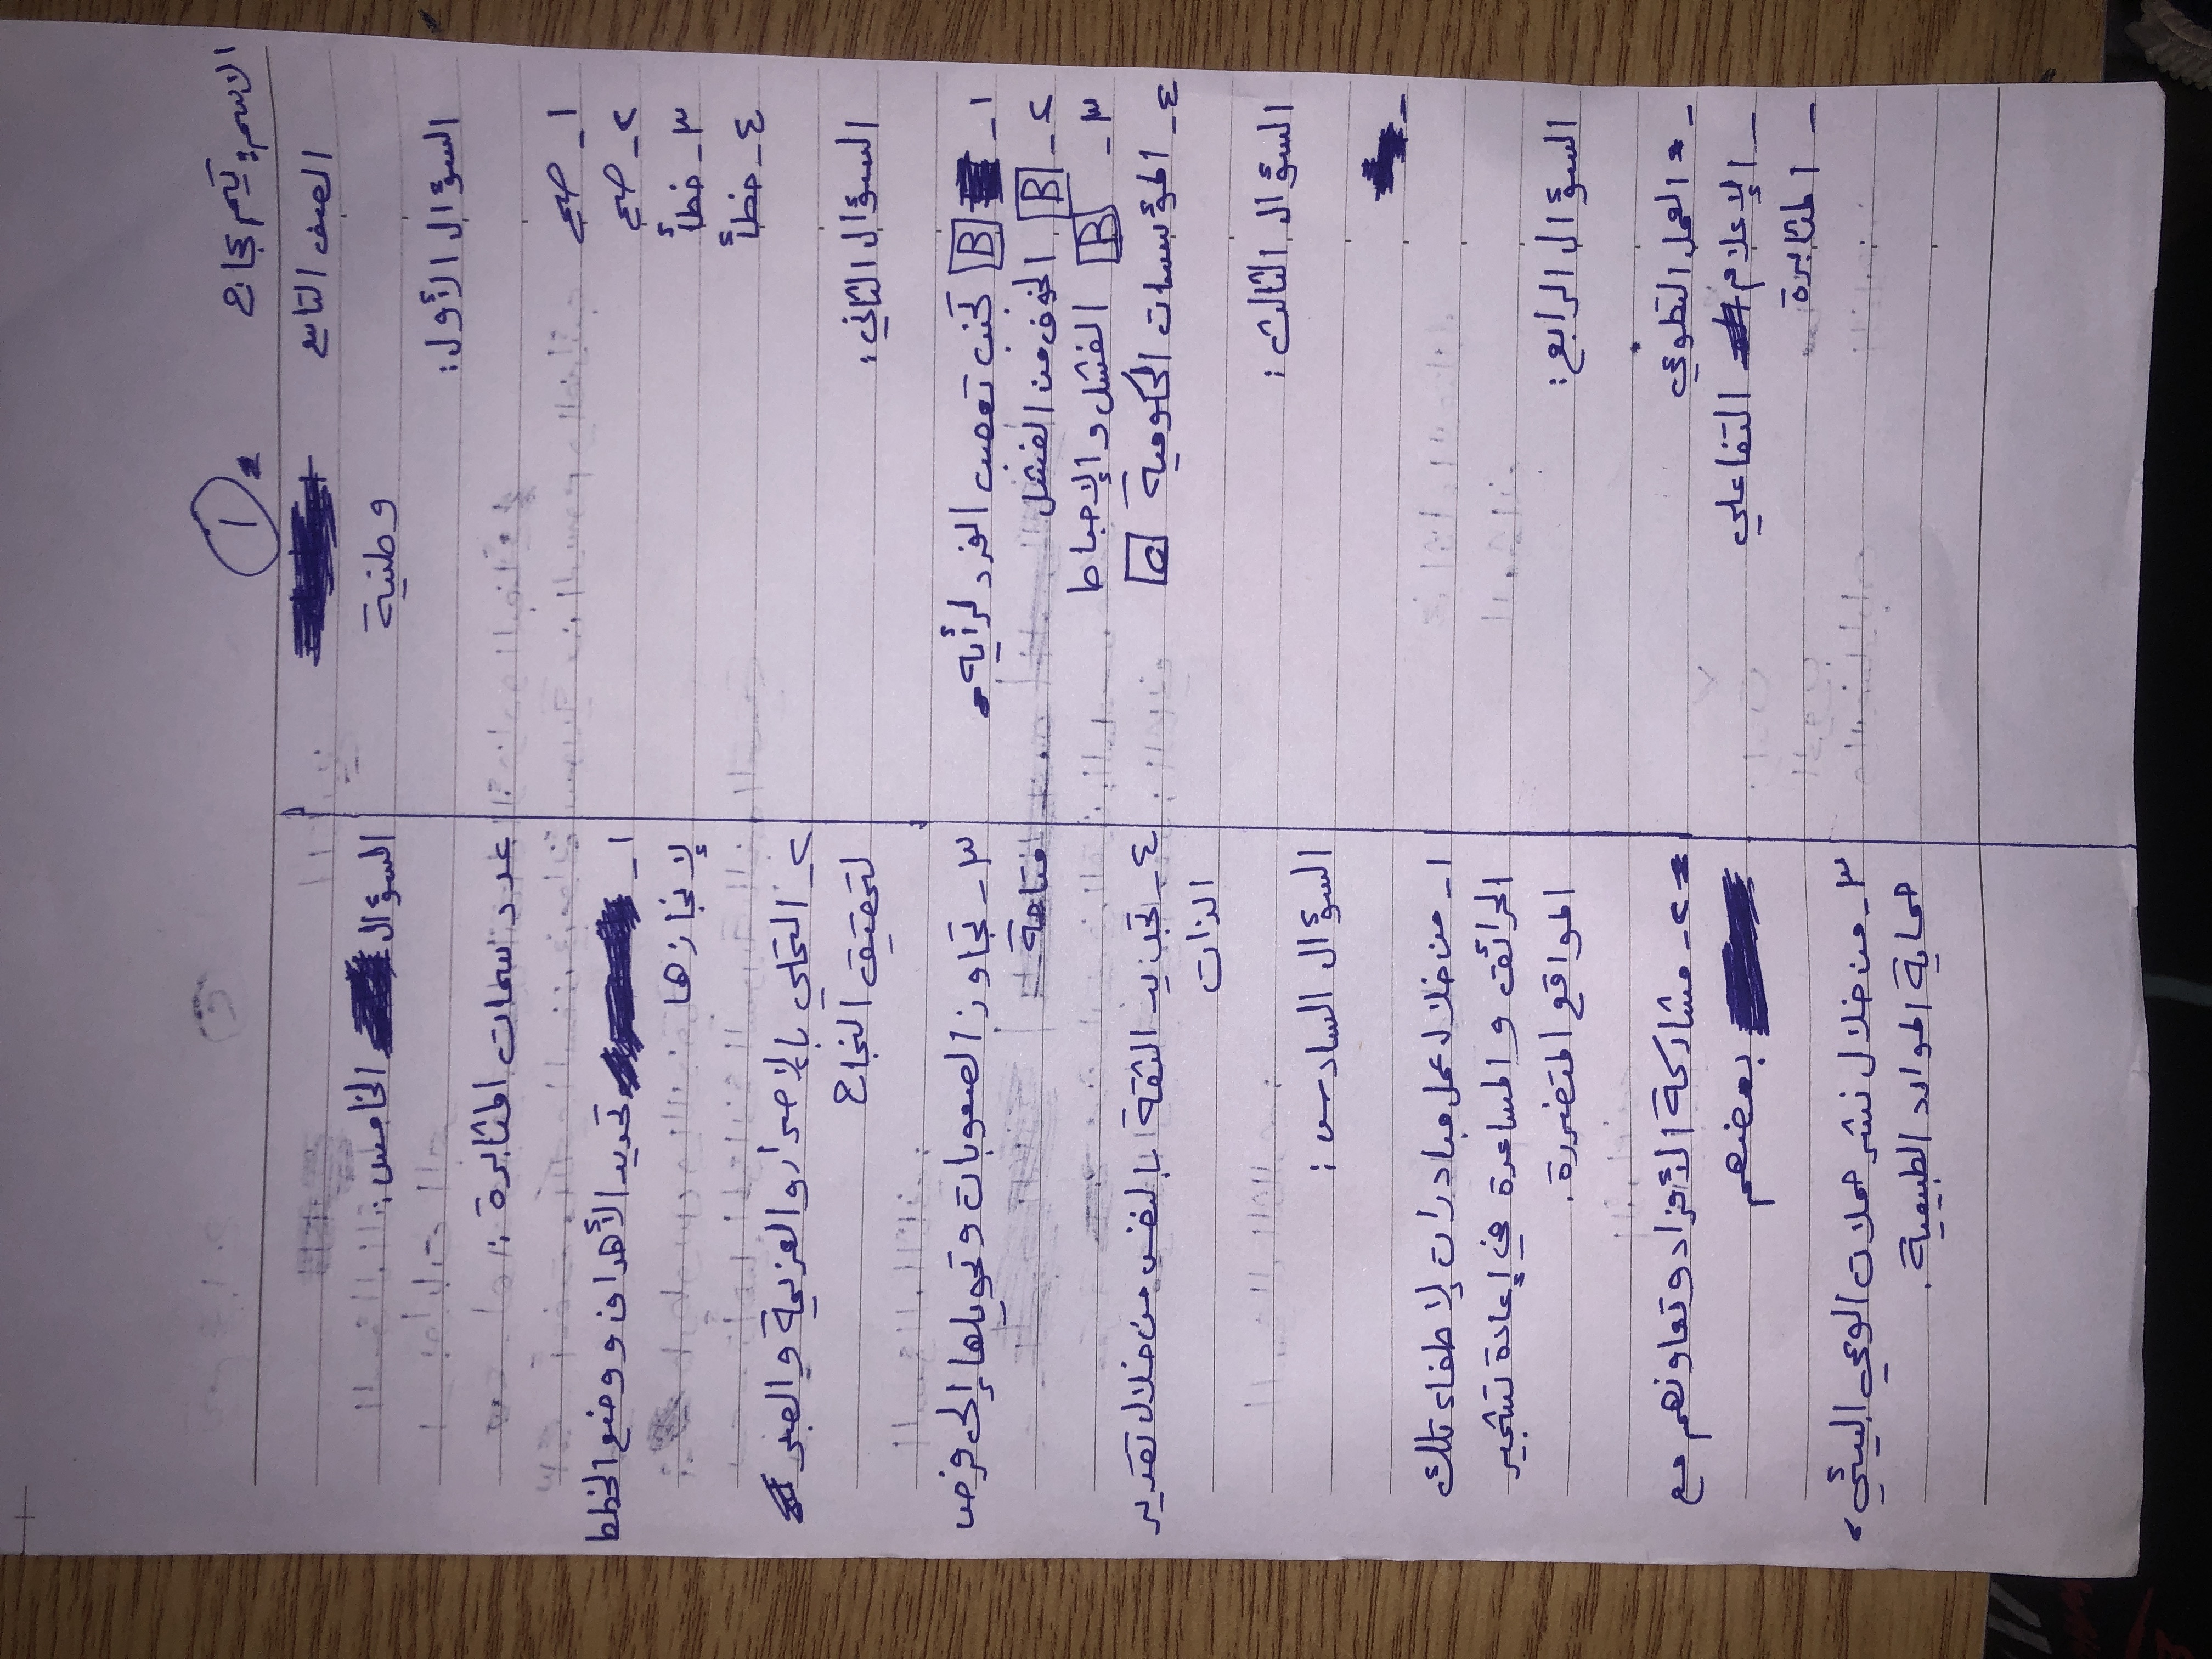 الاسم: تيم نجاح
①
الصف التاسع
وطنية
السؤال الأول:
١- صح
٢- صح
٣- خطأ
٤- خطأ
السؤال الثاني:
١- B تجنب تعصب الفرد لرأيه
٢- B الخوف من الفشل
٣- B الفشل والإحباط
٤- المؤسسات الحكومية C
السؤال الثالث:
-
السؤال الرابع:
- العمل التطوعي
- الإعلام التفاعلي
- المثابرة
السؤال الخامس:
عدد سمات المثابرة:
١- تحديد الأهداف ووضع الخطط
لإنجازها
٢- التحلي بالإصرار والعزيمة والصبر
لتحقيق النجاح
٣- تجاوز الصعوبات وتحويلها إلى فرص
متاحة
٤- تجديد الثقة بالنفس من خلال تقدير
الذات
السؤال السادس:
١- من خلال عمل مبادرات لإطفاء تلك
الحرائق والمساعدة في إعادة تشجير
المواقع المتضررة.
٢- مشاركة الأفراد وتعاونهم مع
بعضهم
٣- من خلال نشر حملات الوعي البيئي،
حماية الموارد الطبيعية.